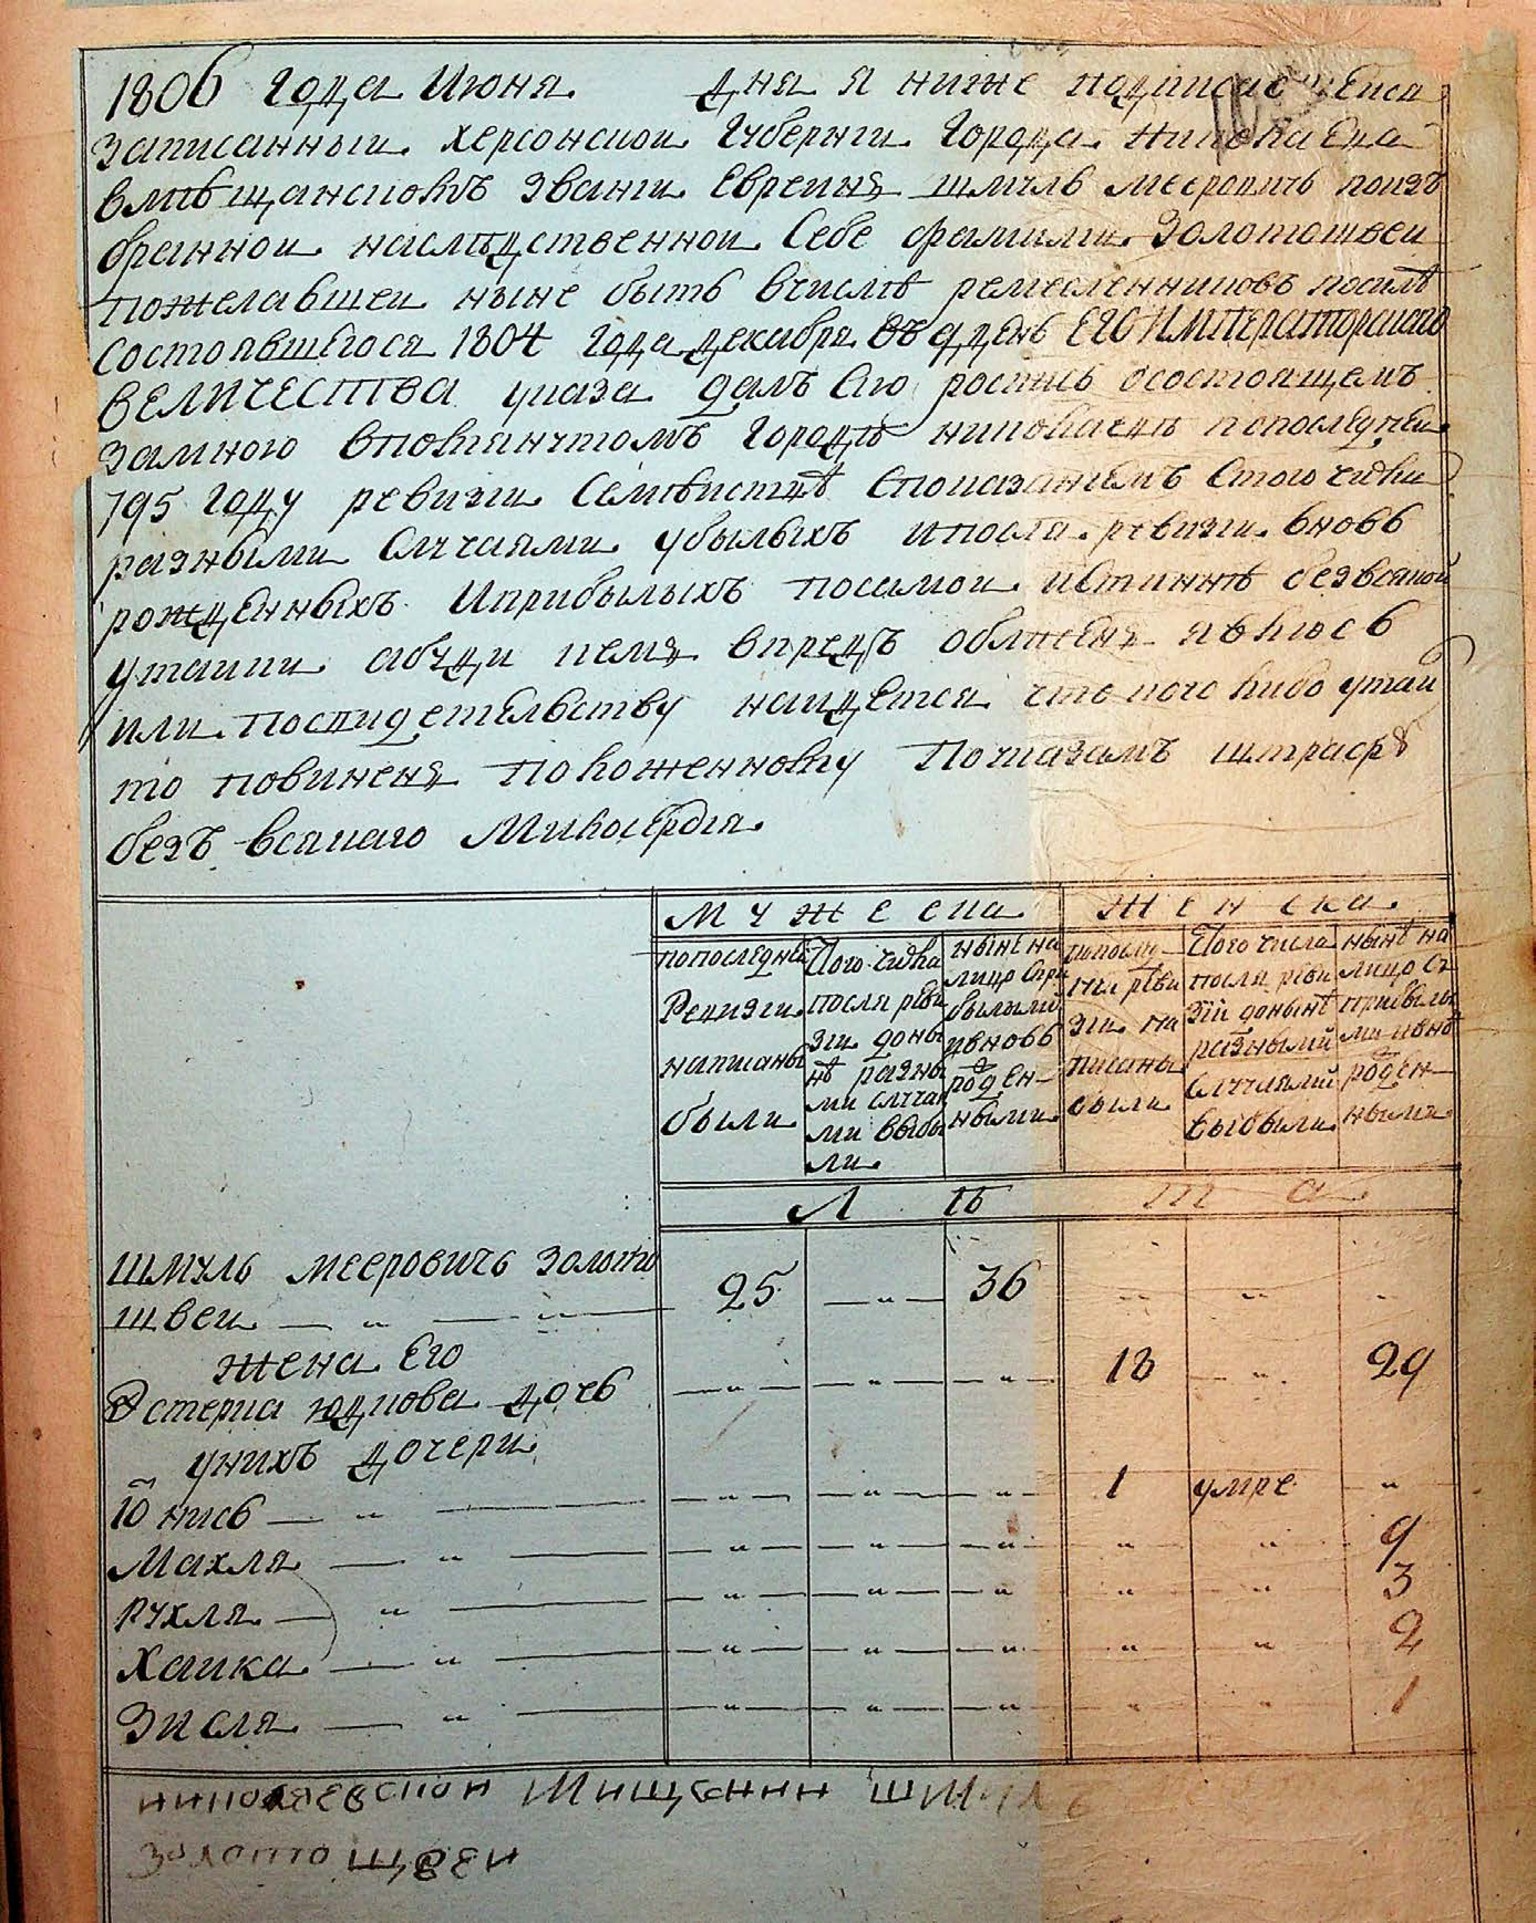 1806 Года Июня дня я ниже подписавшейся
записанныи Херсонскои Губернги Города Николаева
вмѣщанскомъ званги Евреинъ шмуль мееровичь поизъ
бранной наслѣдственнои Себе фамилги Золотошвеи
пожелавшеи ныне быть вчислѣ ремесленниковъ посилѣ
состоявшегося 1804 года декабря въ 9 день ЕГО ИМПЕРАТОРСКАГО
ВЕЛИЧЕСТВА указа далъ Сию роспись осостоящемъ
замною впомянутомъ городѣ николаевѣ попоследнеи
795 году ревизги Семѣиствѣ Споказангемъ Стого числа
разными Случаями убылыхъ ипосля ревизги вновь
рожденныхъ Иприбылыхъ посамои истиннѣ безвсякой
утаики абуди чемъ впредъ обличенъ явлюсь
или посвидетельству наидется что кого либо утаи
то повиненъ положенному Поуказамъ штрафу
безъ всякаго Милосердгя
Мужеска Женска
попоследней Ревизги написаны были
Стого числа после реви зги доны нѣ разны ми случая ми выбы ли
нынѣ на лицо Спри былыми ивновь рожден- ными
попослед- неи реви зги на писаны были
Стого числа после реви зги донынѣ разными Случаями выбыли
нынѣ на лицо Съ прибылы ми ивно рожден- ными
Л ѣ т а
Шмуль мееровичь Золото
швеи — " — " — 25 — " — 36 " " "
жена Его
Эстерка юдкова дочь — " — — " — — " — 18 " 29
унихъ дочери
Юнись — " — — " — — " — — " — 1 умре "
Махля — " — — " — — " — — " — " " 9
Рухля — " — — " — — " — — " — " " 3
Хаика — " — — " — — " — — " — " " 2
Зисля — " — — " — — " — — " — " " 1
николаевскои Мищенин шмуль
Золотошвеи